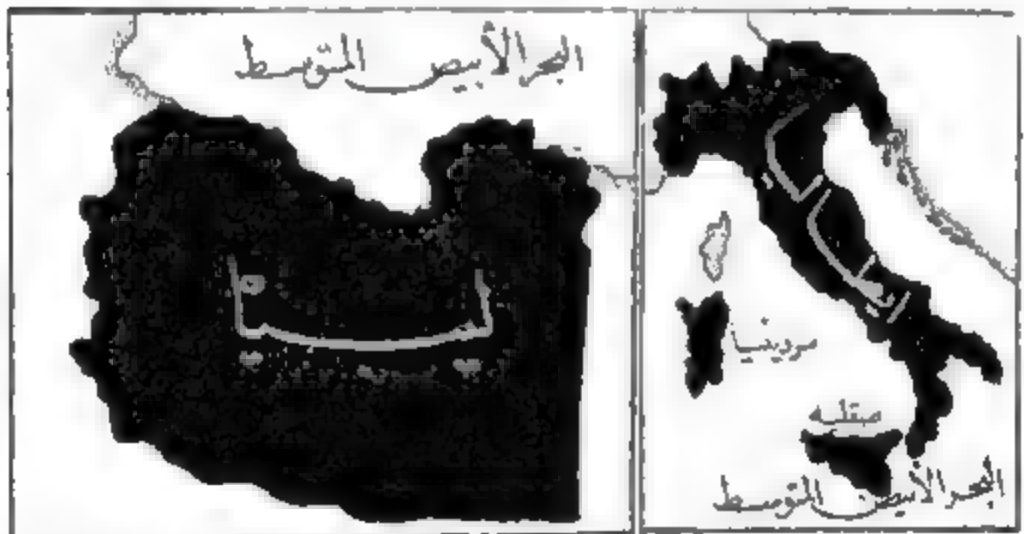 البحر الأبيض المتوسط
ليبيا
إيطاليا
سردينيا
صقليه
البحر الأبيض المتوسط